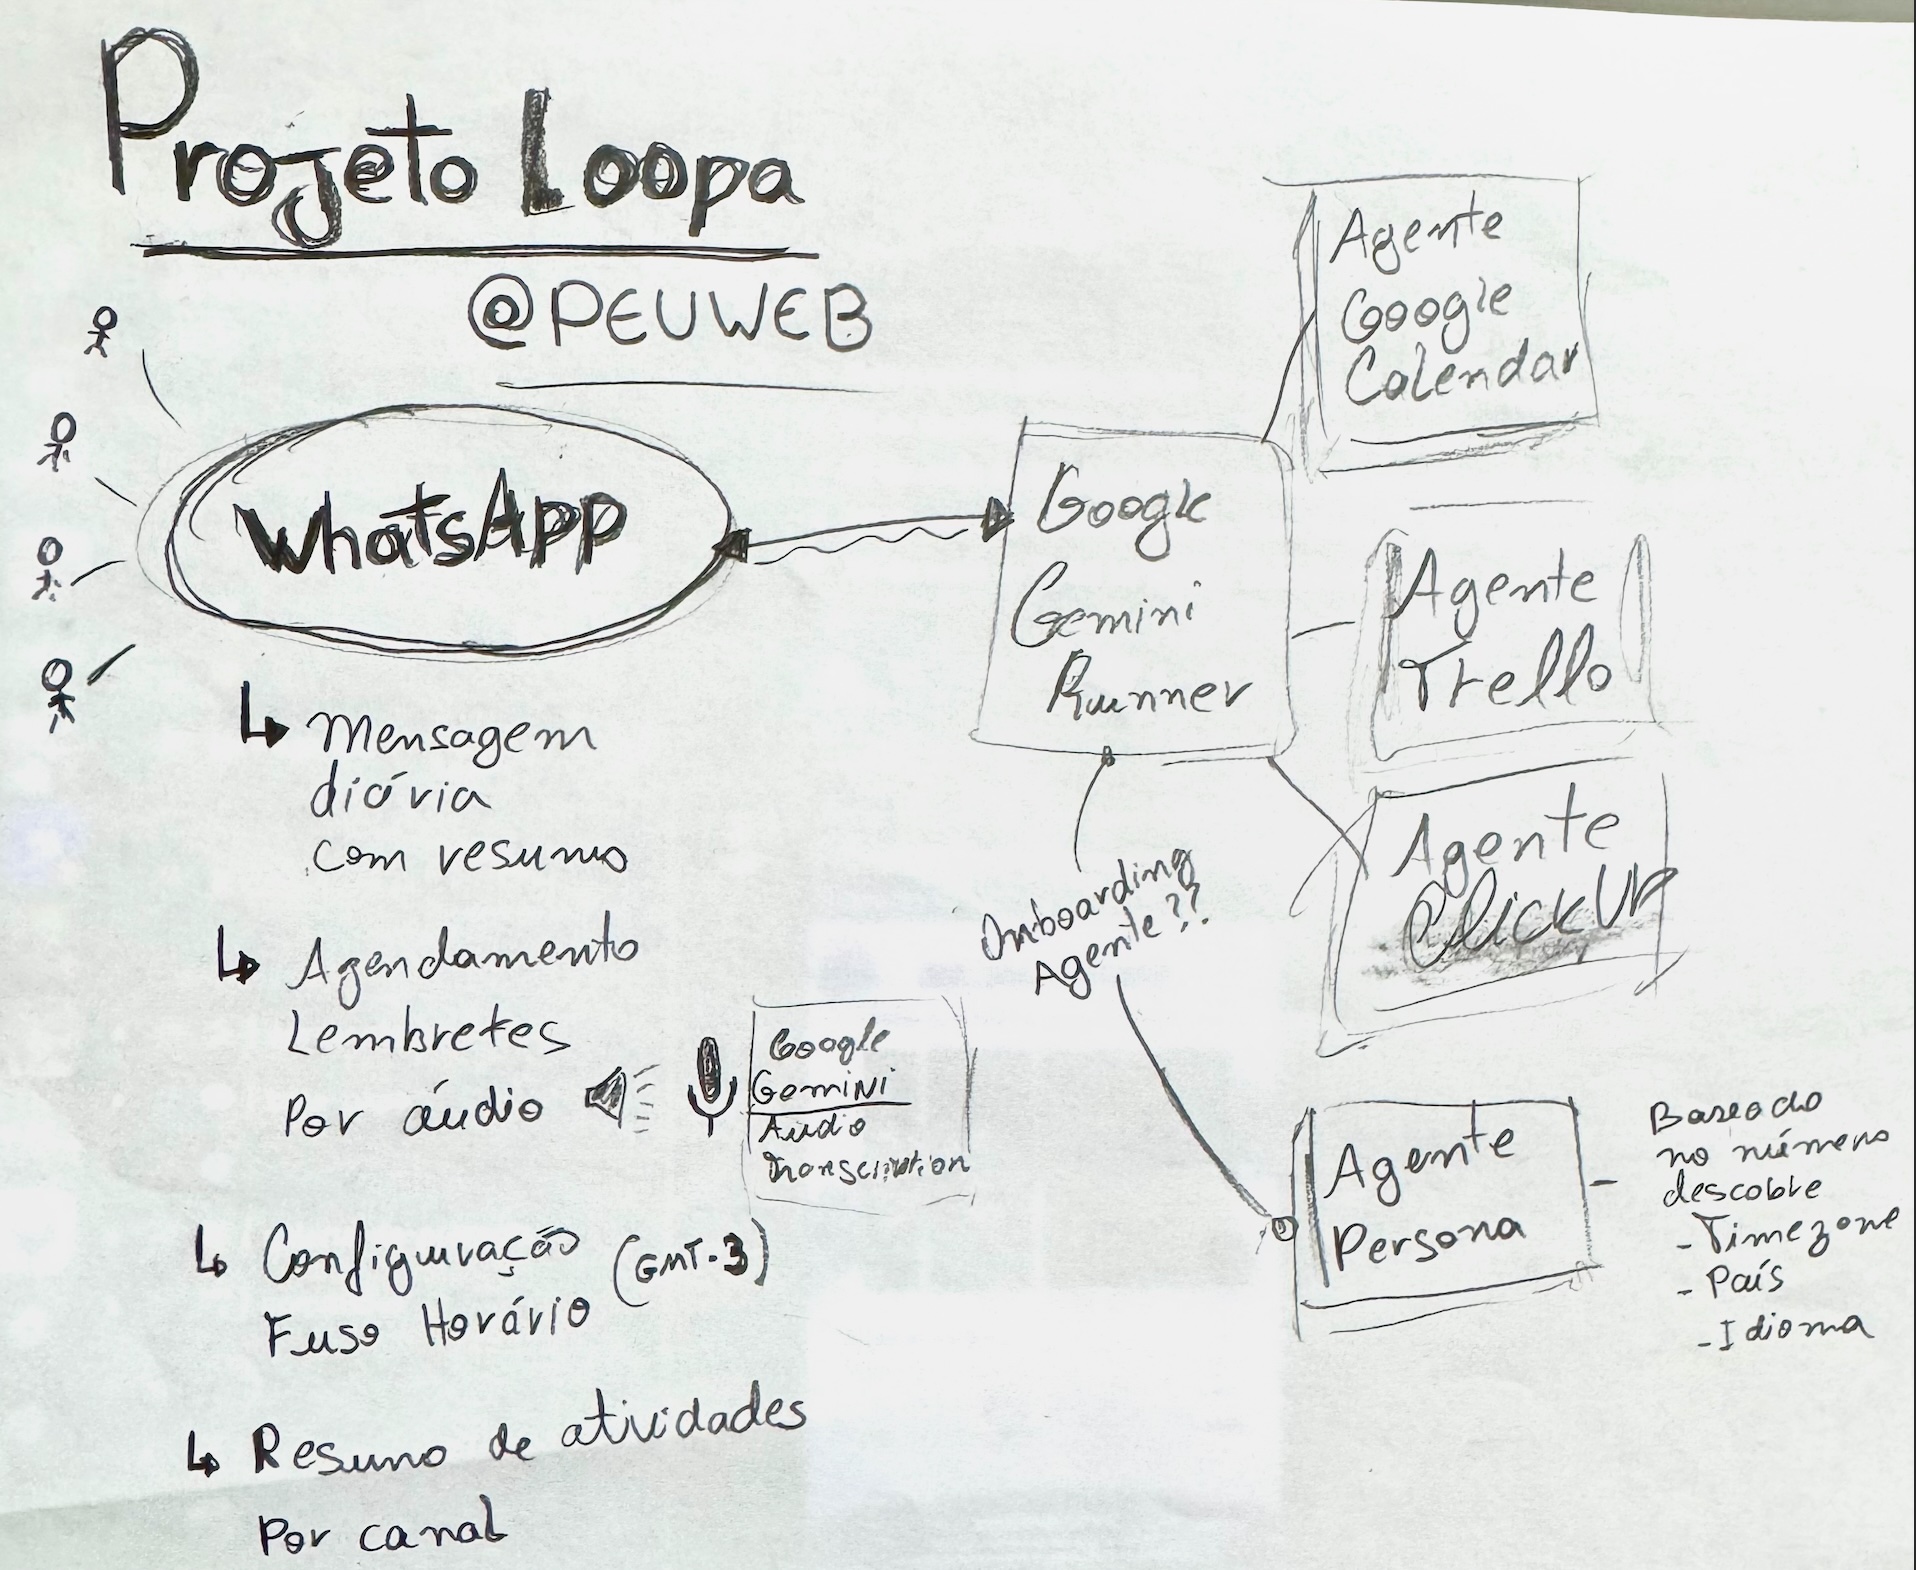 Projeto Loopa
@PEUWEB
WhatsApp
Mensagem
diária
com resumo
Agendamento
Lembretes
Por áudio
Google
Gemini
Audio
Transcription
Configuração (GMT-3)
Fuso Horário
Resumo de atividades
Por canal
Google
Gemini
Runner
Agente
Google
Calendar
Agente
Trello
Agente
ClickUp
Onboarding
Agente??
Agente
Persona
Baseado
no número
descobre
- Timezone
- País
- Idioma